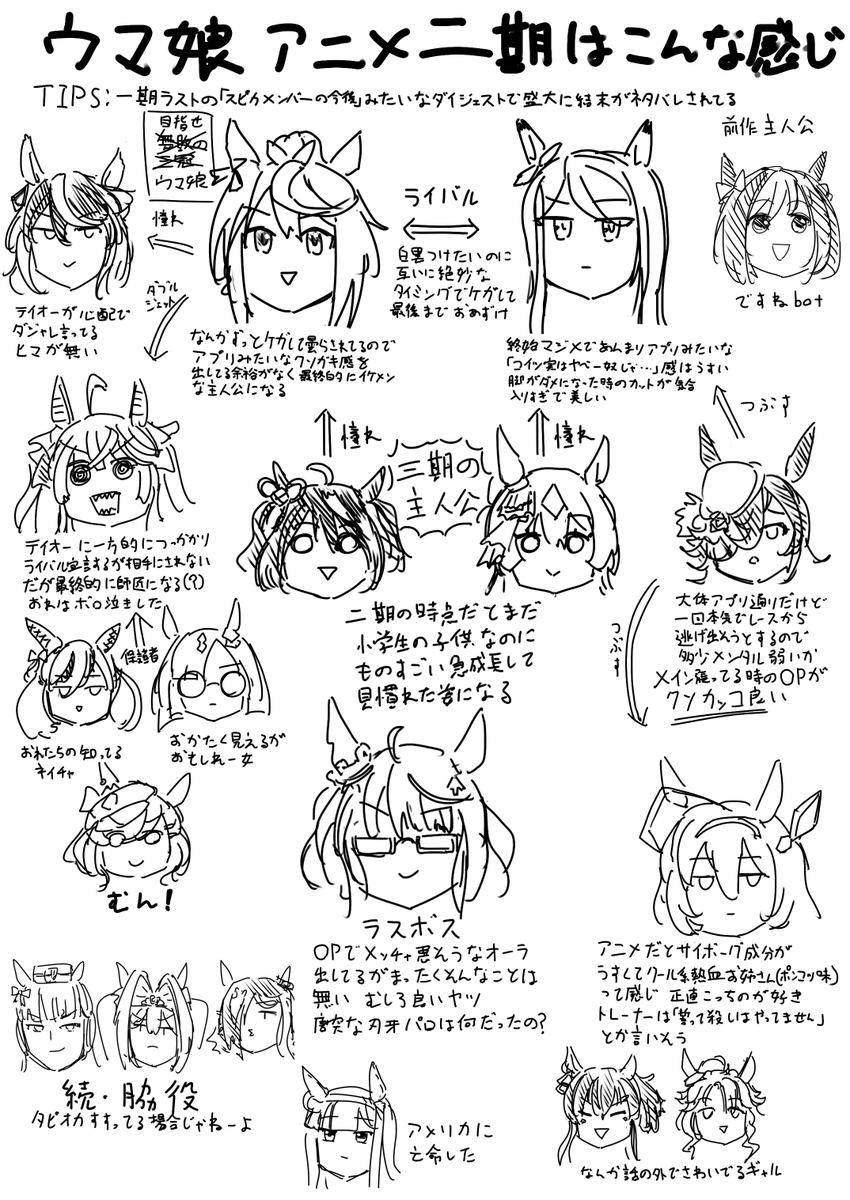 ウマ娘 アニメ二期はこんな感じ
TIPS:一期ラストの「スピカメンバーの今後」みたいなダイジェストで盛大に結末がネタバレされてる
目指せ
無敗の
三冠
ウマ娘
前作主人公
ですねbot
憧れ
ライバル
白黒つけたいのに
互いに絶妙な
タイミングでケガして
最後までおあずけ
テイオーが心配で
ダジャレ言ってる
ヒマが無い
ダブル
ジェット
なんかずっとケガして曇らされてるので
アプリみたいなクソガキ感を
出してる余裕がなく最終的にイケメン
な主人公になる
終始マジメであんまりアプリみたいな
「コイツ実はヤベー奴じゃ…」感はうすい
脚がダメになった時のカットが気合
入りすぎで美しい
つぶす
憧れ
三期の
主人公
憧れ
テイオーに一方的につっかかり
ライバル宣言するが相手にされない
だが最終的に師匠になる(?)
おれはボロ泣きした
二期の時点だとまだ
小学生の子供なのに
ものすごい急成長して
見慣れた姿になる
大体アプリ通りだけど
一回本気でレースから
逃げ出そうとするので
多少メンタル弱いか
メイン張ってる時のOPが
クソカッコ良い
つぶす
保護者
おれたちの知ってる
ネイチャ
おかたく見えるが
おもしれー女
むん!
ラスボス
OPでメッチャ悪そうなオーラ
出してるがまったくそんなことは
無い むしろ良いヤツ
唐突な刃牙パロは何だったの?
アニメだとサイボーグ成分が
うすくてクール系熱血お姉さん(ポンコツ味)
って感じ 正直こっちのが好き
トレーナーは「誓って殺しはやってません」
とか言いそう
続・脇役
タピオカすすってる場合じゃねーよ
アメリカに
亡命した
なんか話の外でさわいでるギャル